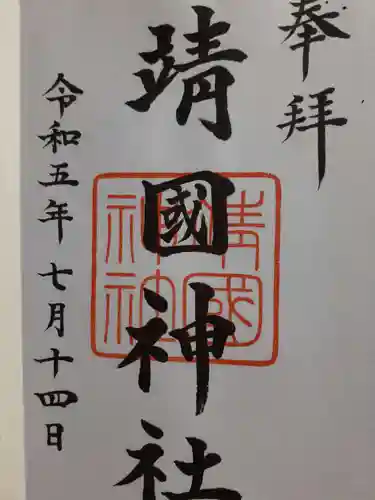 奉拝
靖國神社
靖國
神社
令和五年七月十四日